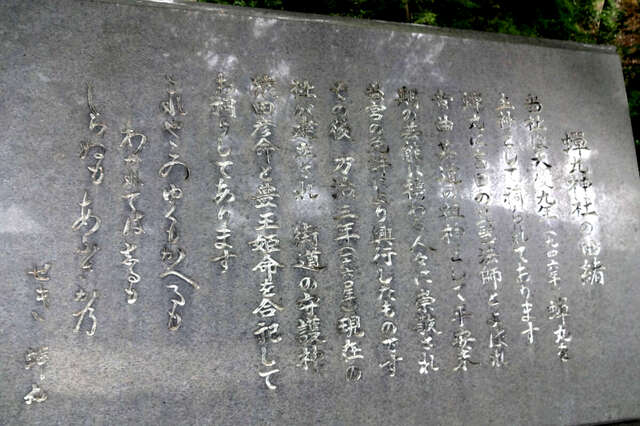 蝉丸神社の由緒
当社は天慶九年(九四六年)蝉丸を
主神として祠られております
蝉丸は盲目の琵琶法師とよばれ
音曲芸道の祖神として平安末
期の芸能に携わる人々に崇敬され
当宮の免許により興行したものです
その後 万治三年(一六六〇年)現在の
社が建立され 街道の守護神
猿田彦命と豊玉姫命を合祀して
お祠りしてあります
これやこのゆくもかへるも
わかれてはしるも
しらぬもあふさかの
せき 蝉丸